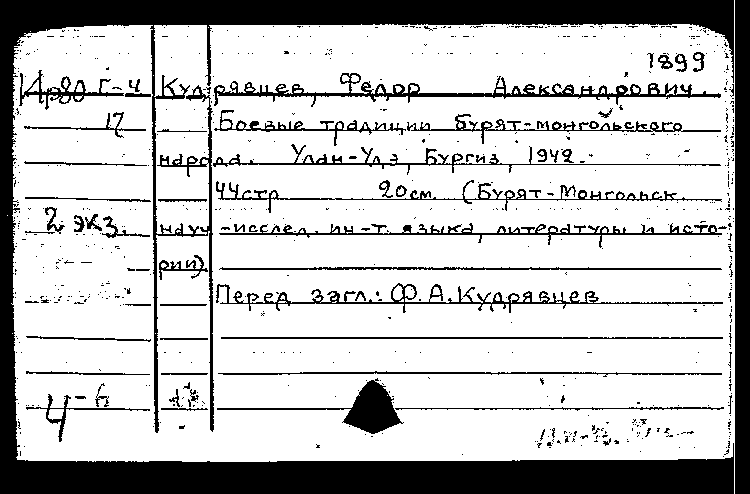 1899
Г-4 Кудрявцев, Федор Александрович.
17 Боевые традиции бурят-монгольского
народа. Улан-Удэ, Бургиз, 1942.
44стр 20см. (Бурят-Монгольск.
2 экз. науч-исслед. ин-т. языка, литературы и исто-
рии)
Перед загл.: Ф.А.Кудрявцев
4-6